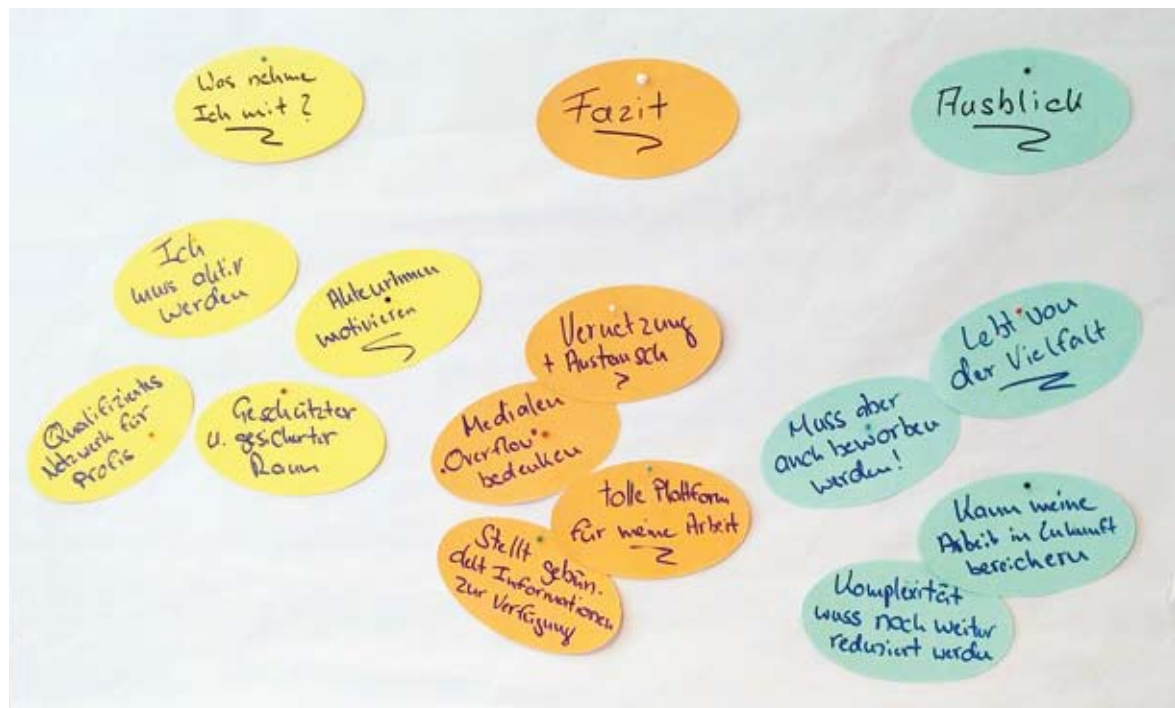 Was nehme
Ich mit?
Ich
muss aktiv
werden
Akteurinnen
motivieren
Qualifiziertes
Netzwerk für
Profis
Geschützter
u. gesicherter
Raum
Fazit
Vernetzung
+ Austausch
Medialen
"Overflow"
bedenken
tolle Plattform
für meine Arbeit
Stellt gebün-
delt Informationen
zur Verfügung
Ausblick
Lebt von
der Vielfalt
Muss aber
auch beworben
werden!
Kann meine
Arbeit in Zukunft
bereichern
Komplexität
muss noch weiter
reduziert werden